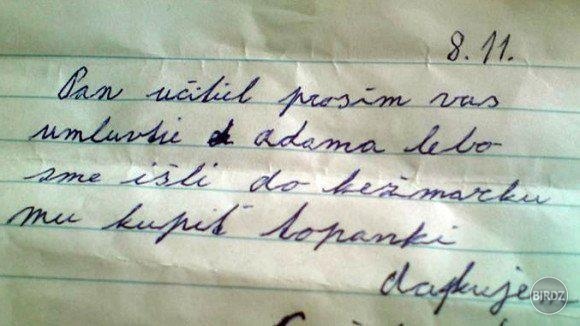 8.11.
Pan učitel prosím vas
umluvtie adama lebo
sme išli do kežmarku
mu kupiť topanki
dakujem
BIRDZ